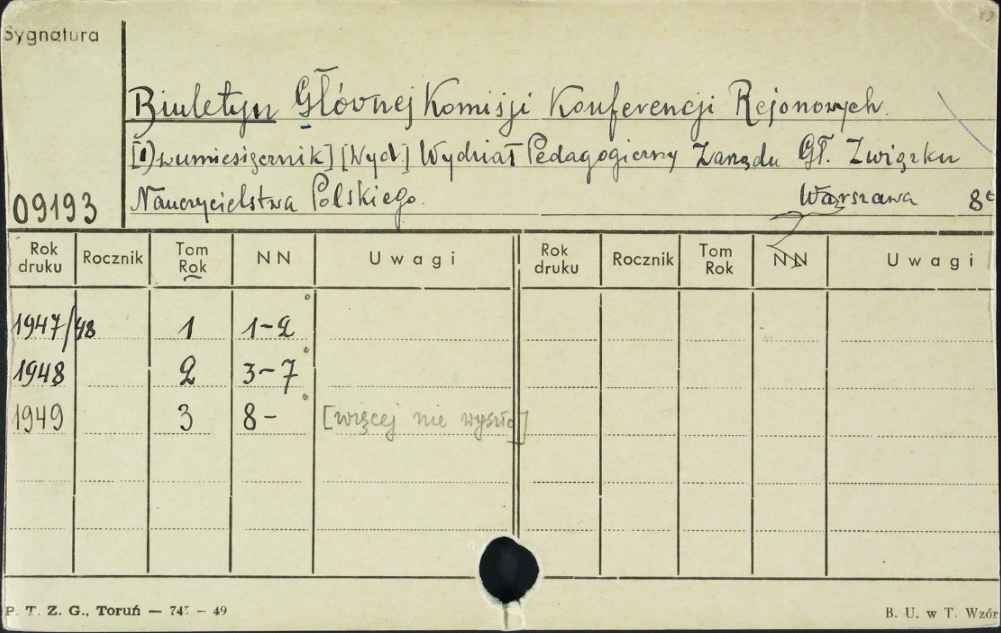 Sygnatura
Biuletyn Głównej Komisji Konferencji Rejonowych.
[D]wumiesięcznik] [Wyd.] Wydział Pedagogiczny Zarządu Gł. Związku
09193 Nauczycielstwa Polskiego. Warszawa 8°
Rok druku Rocznik Tom Rok NN Uwagi Rok druku Rocznik Tom Rok NN Uwagi
1947/48 1 1-2
1948 2 3-7
1949 3 8- [więcej nie wyszło]
P. T. Z. G., Toruń — 74 – 49 B. U. w T. Wzór